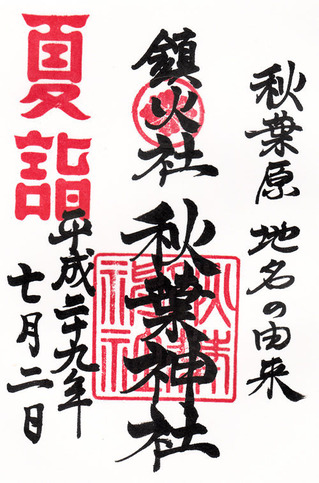 秋葉原 地名の由来
鎮火社
秋葉神社
夏詣
平成二十九年
七月二日
秋葉神社